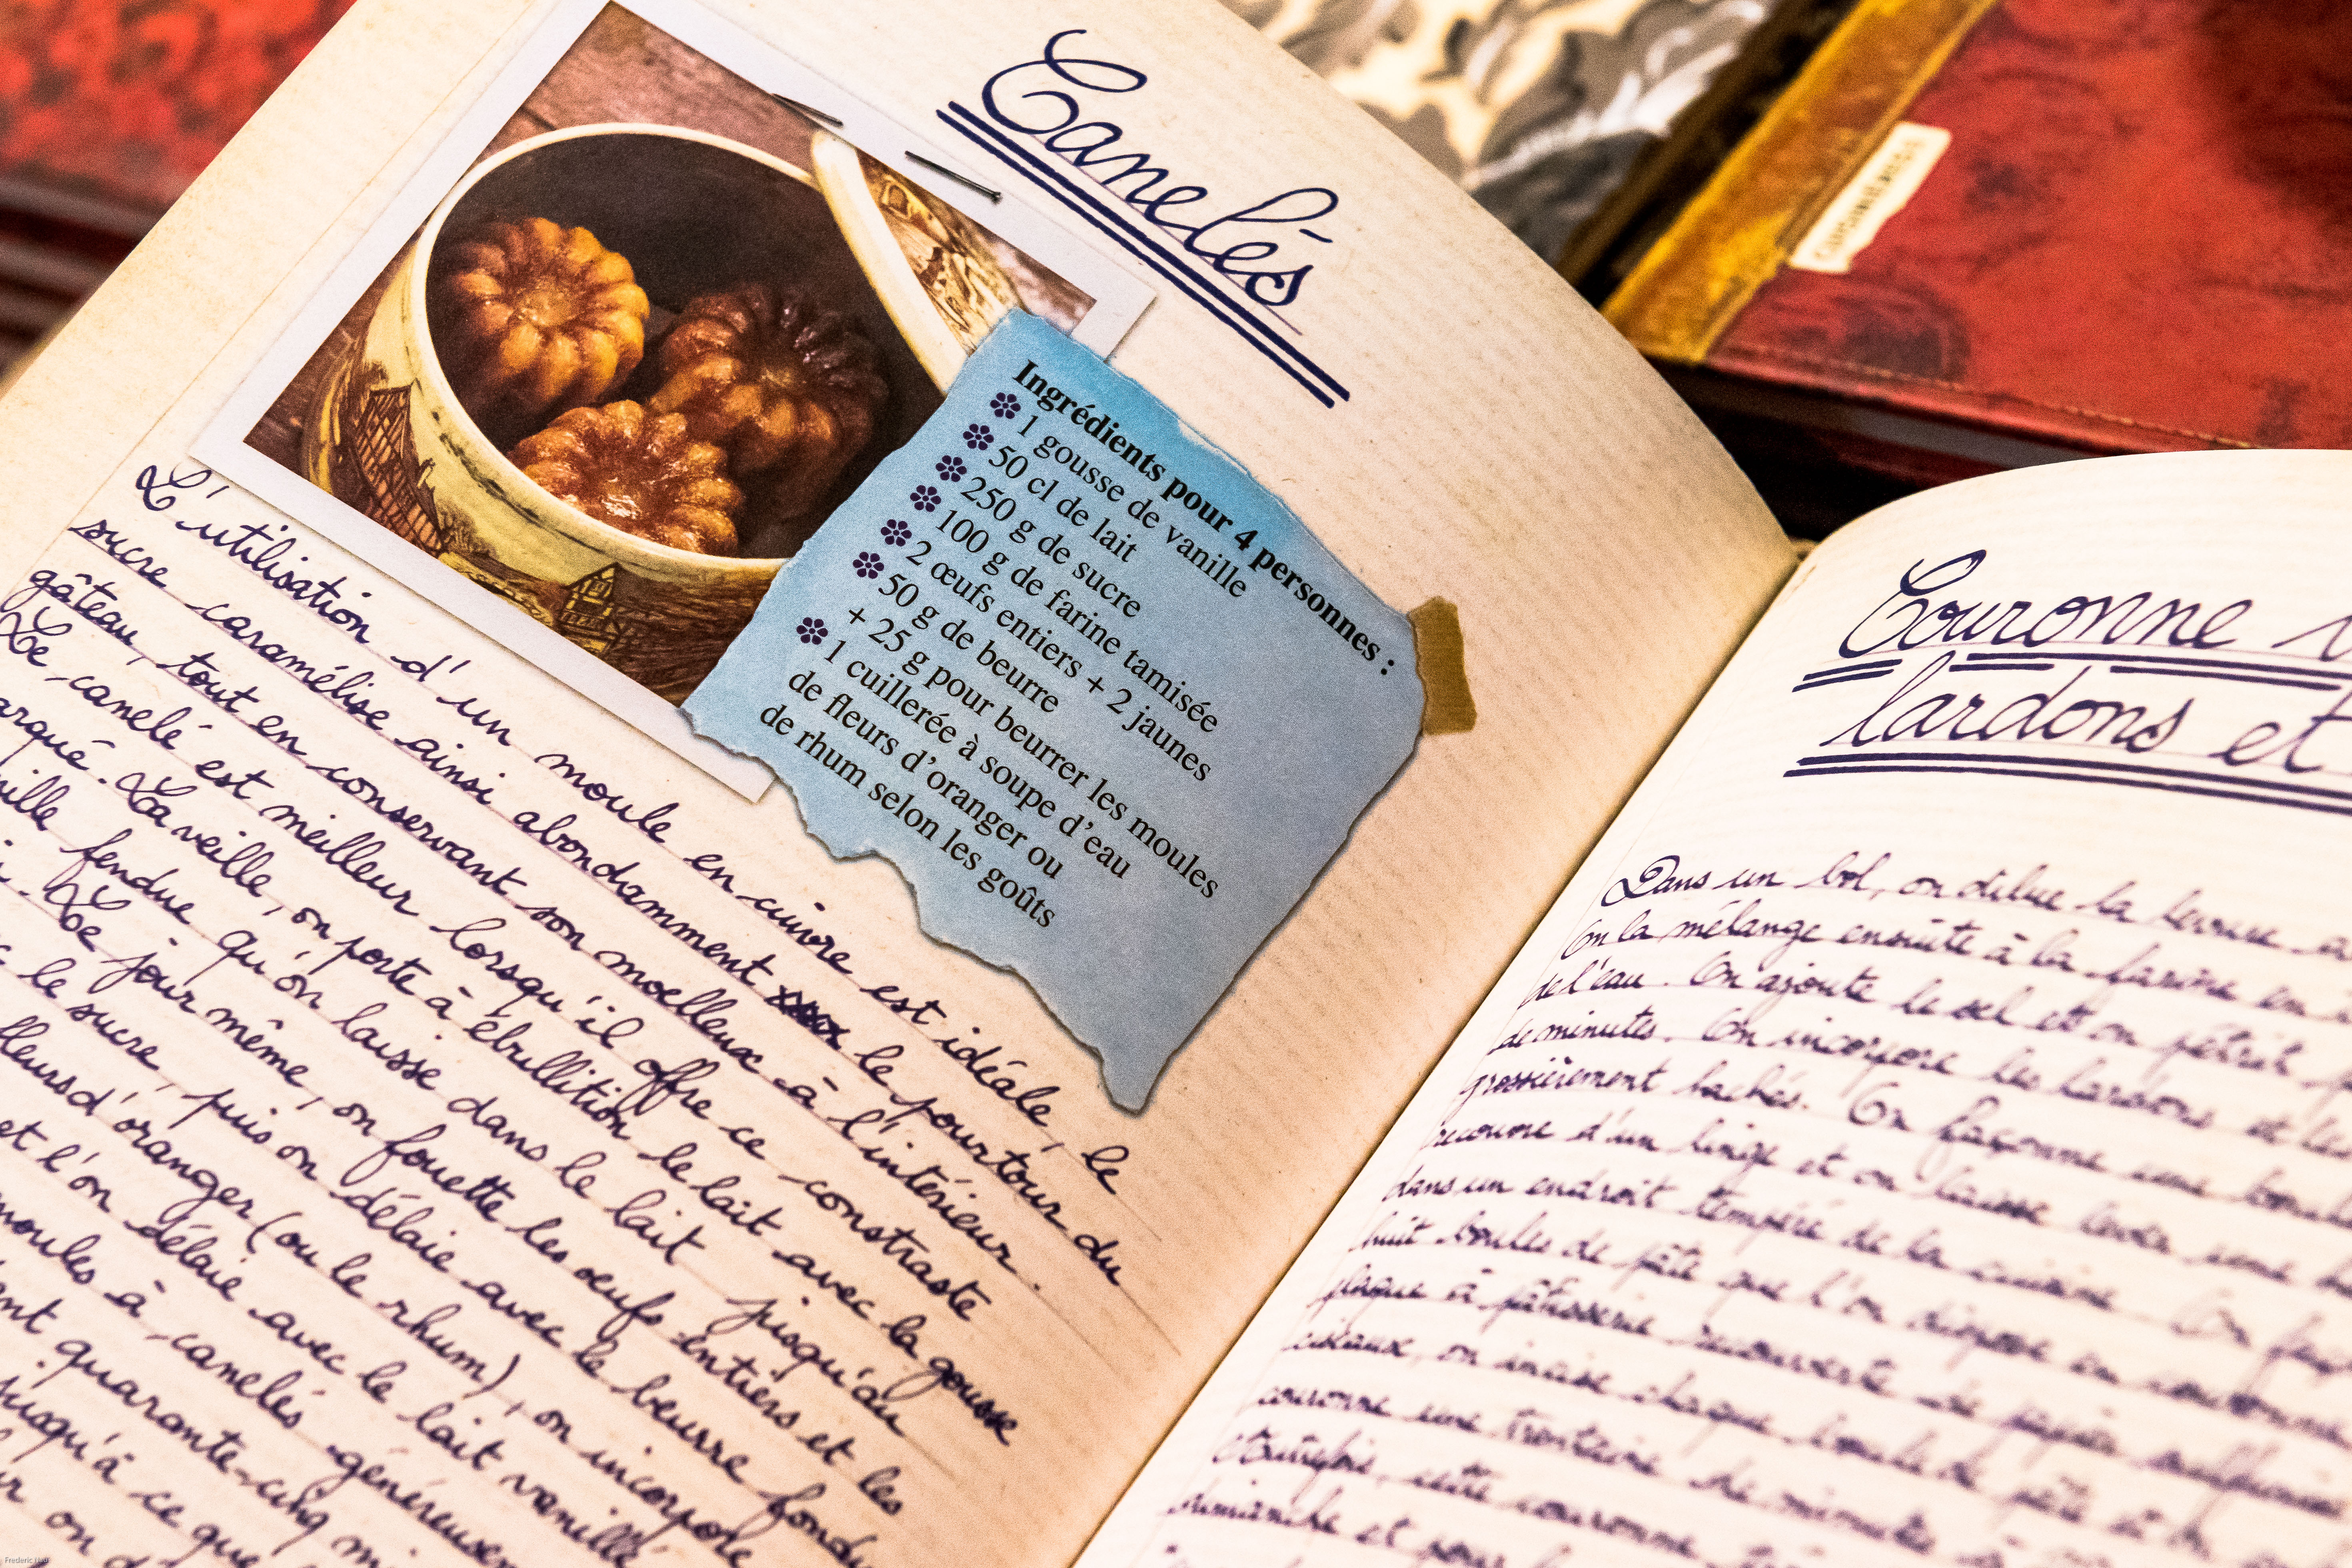 Canelés
Ingrédients pour 4 personnes :
1 gousse de vanille
50 cl de lait
250 g de sucre
100 g de farine tamisée
2 œufs entiers + 2 jaunes
50 g de beurre
+ 25 g pour beurrer les moules
1 cuillerée à soupe d'eau
de fleurs d'oranger ou
de rhum selon les goûts
L'utilisation d'un moule en cuivre est idéale, le
sucre caramélise ainsi abondamment le pourtour du
gâteau, tout en conservant son moelleux à l'intérieur.
Le canelé est meilleur lorsqu'il offre ce constraste
arqué. La veille, on porte à ébullition le lait avec la gousse
ille fendue qu'on laisse dans le lait jusqu'au
. Le jour même, on fouette les œufs entiers et les
le sucre, puis on délaie avec le beurre fondu
fleurs d'oranger (ou le rhum), on incorpore
et l'on délaie avec le lait vanillé
moules à canelés généreusem
ent quarante-cinq mi
jusqu'à ce que
on d
Couronne
lardons et
Dans un bol, on délue la levure
On la mélange ensuite à la farine en
de l'eau. On ajoute le sel et on pétrit
de minutes. On incorpore les lardons et les
grossièrement hachés. On façonne une boule
recouvre d'un linge et on laisse lever une
dans un endroit tempéré de la cuisine. On
huit boules de pâte que l'on dispose en couronne
plaque à pâtisserie recouverte de papier sulfurisé
ciseaux, on incise chaque boule de pâte
couronne une trentaine de minutes
Autrefois, cette couronne
dimanche et pour
Frederic